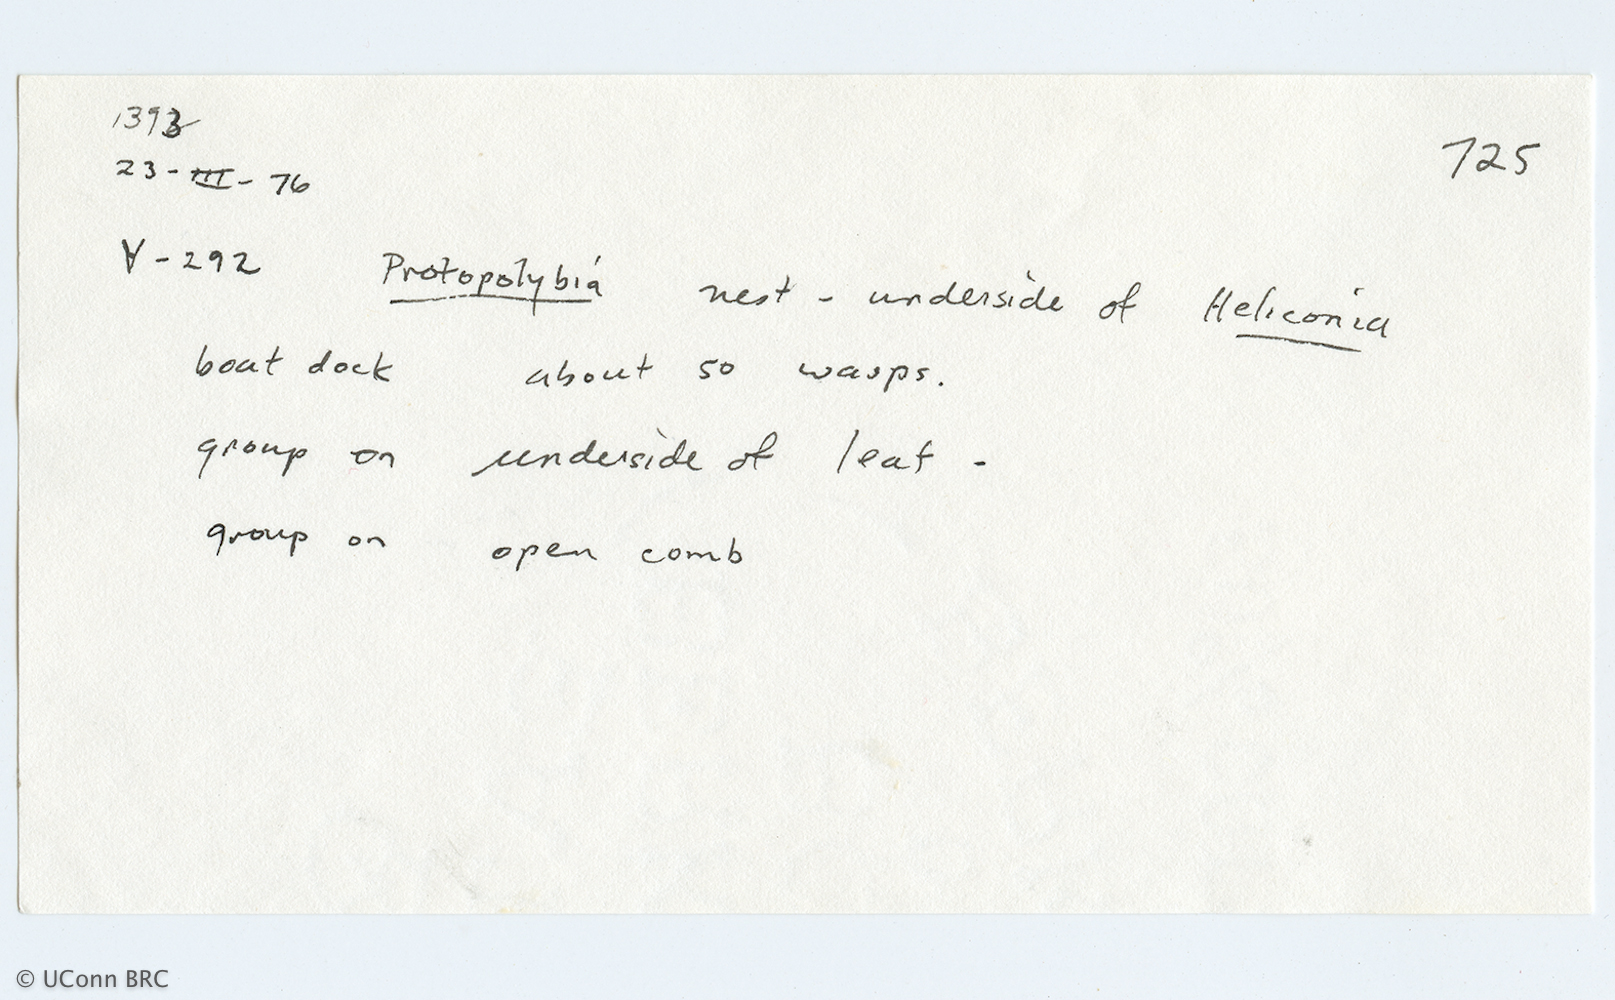 1393
725
23-III-76
A-292 Protopolybia nest - underside of Heliconia
boat dock about 50 wasps.
group on underside of leaf -
group on open comb
© UConn BRC